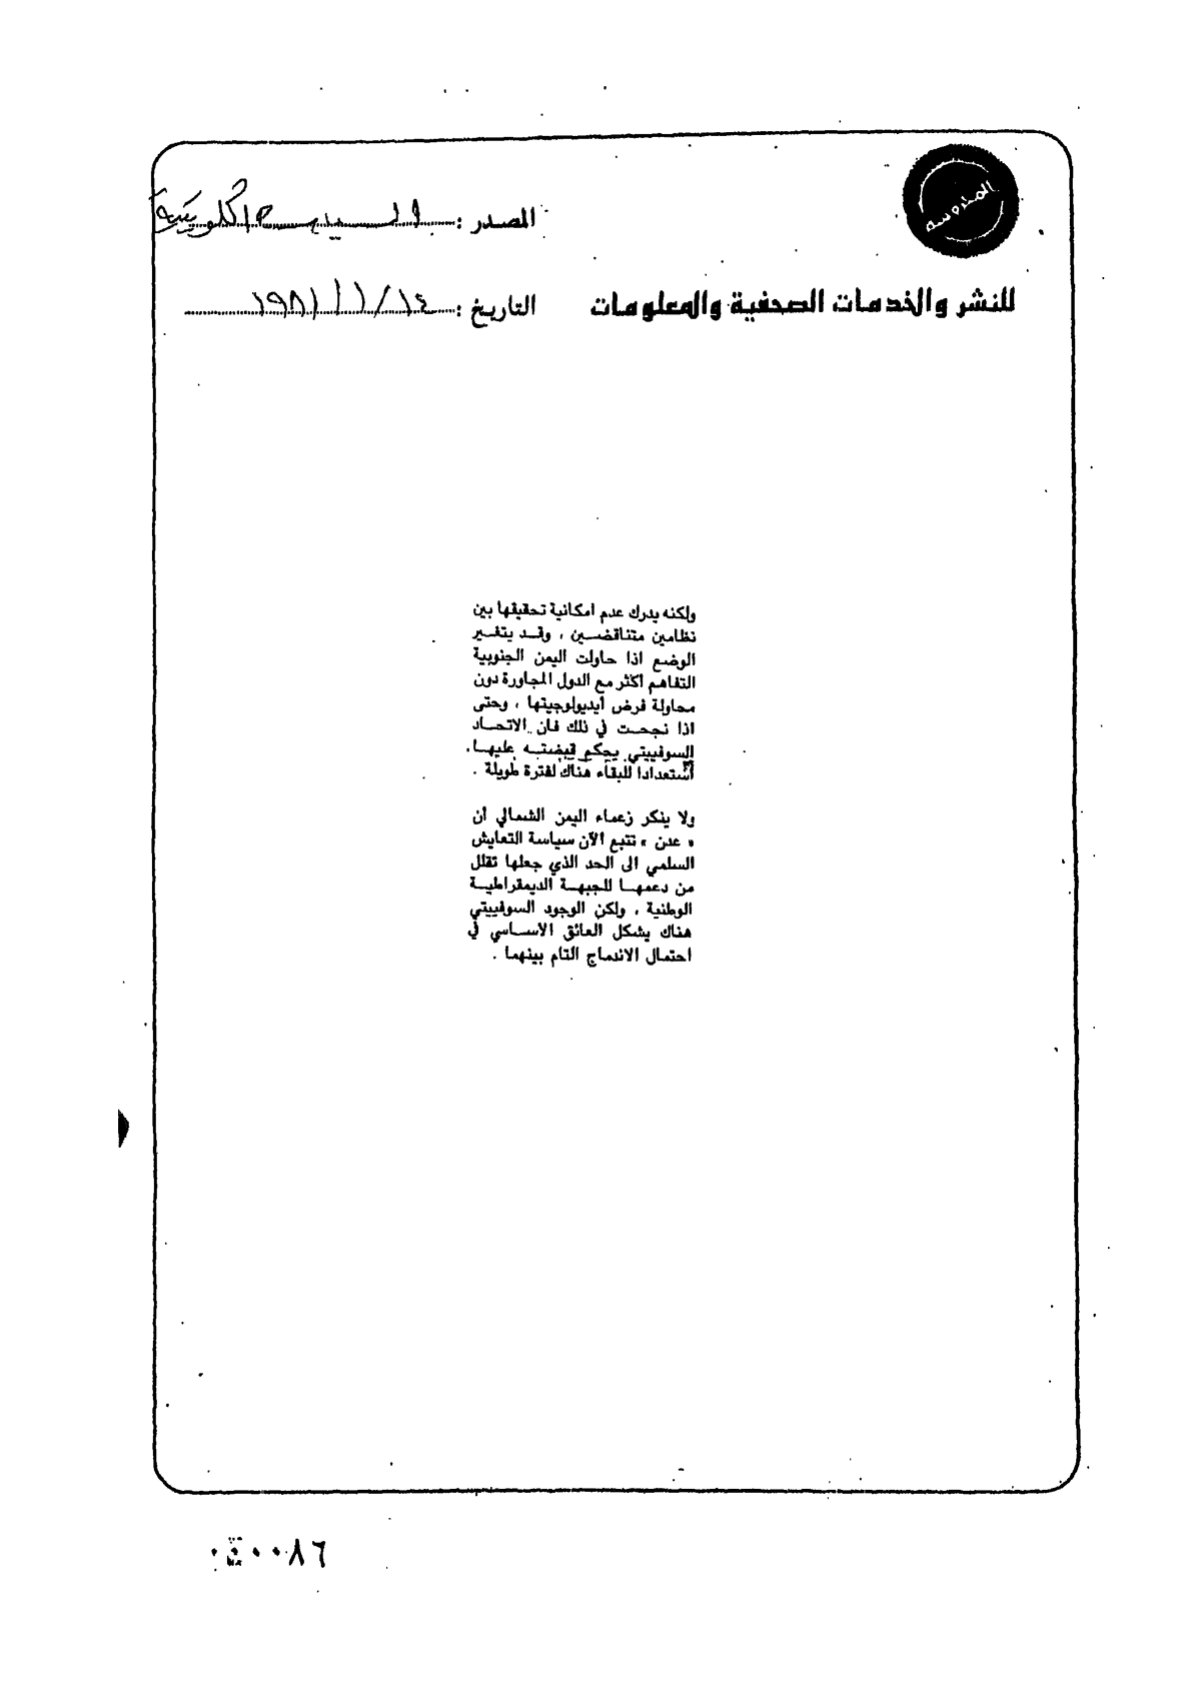 المحروسة
المصدر : السياسة الكويتية
للنشر والخدمات الصحفية والمعلومات
التاريخ : ١٤/١/١٩٨١
ولكنه يدرك عدم امكانية تحقيقها بين
نظامين متناقضين ، وقد يتغير
الوضع اذا حاولت اليمن الجنوبية
التفاهم اكثر مع الدول المجاورة دون
محاولة فرض ايديولوجيتها ، وحتى
اذا نجحت في ذلك فان الاتحاد
السوفييتي يحكم قبضته عليها .
استعدادا للبقاء هناك لفترة طويلة .
ولا ينكر زعماء اليمن الشمالي ان
« عدن » تتبع الآن سياسة التعايش
السلمي الى الحد الذي جعلها تقلل
من دعمها للجبهة الديمقراطية
الوطنية ، ولكن الوجود السوفييتي
هناك يشكل العائق الاساسي في
احتمال الاندماج التام بينهما .